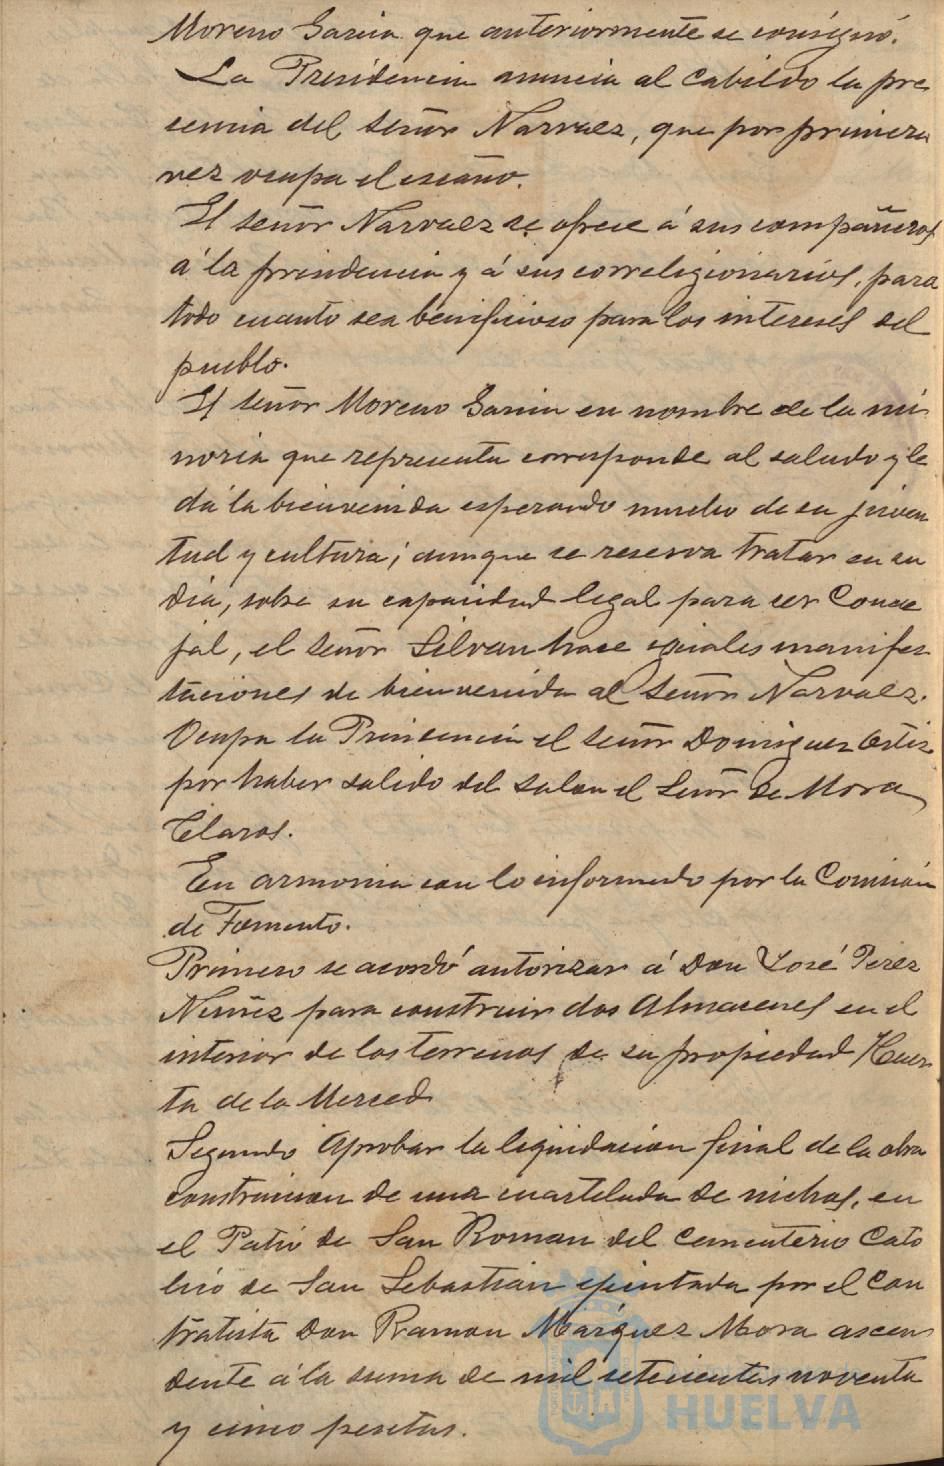 Moreno Garcia que anteriormente se consignó.
La Presidencia anuncia al Cabildo la pre
sencia del señor Narvaez, que por primera
vez ocupa el escaño.
El señor Narvaez se ofrece á sus compañeros
á la presidencia y á sus correligionarios, para
todo cuanto sea beneficioso para los intereses del
pueblo.
El señor Moreno Garcia en nombre de la mi
noria que representa corresponde al saludo y le
dá la bienvenida esperando mucho de su juven
tud y cultura; aunque se reserva tratar en su
dia, sobre su capacidad legal para ser Conce
jal, el señor Silvan hace iguales manifes
taciones de bienvenida al Señor Narvaez.
Ocupa la Presidencia el señor Dominguez Ortiz
por haber salido del salon el Señor de Mora
Claros.
En armonia con lo informado por la Comisión
de Fomento.
Primero se acordó autorizar á Don José Perez
Nuñez para construir dos Almacenes en el
interior de los terrenos de su propiedad Huer
ta de la Merced
Segundo Aprobar la liquidacion final de la obra
construccion de una cuartelada de nichos, en
el Patio de San Roman del Cementerio Cató
lico de San Sebastián ejecutada por el Con
tratista Don Ramon Márquez Mora ascen
dente á la suma de mil setecientas noventa
y cinco pesetas.
HUELVA